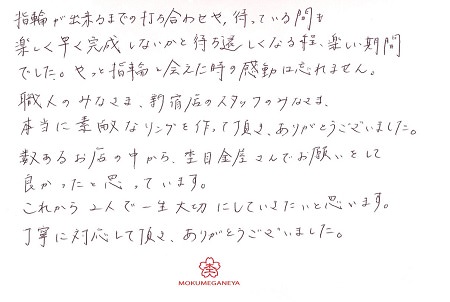 指輪が出来るまでの打ち合わせや、待っている間も
楽しく早く完成しないかと待ち遠しくなる程、楽しい期間
でした。やっと指輪と会えた時の感動は忘れません。
職人のみなさま、新宿店のスタッフのみなさま、
本当に素敵なリングを作って頂き、ありがとうございました。
数あるお店の中から、杢目金屋さんでお願いをして
良かったと思っています。
これから2人で一生大切にしていきたいと思います。
丁寧に対応して頂き、ありがとうございました。
杢
MOKUMEGANEYA